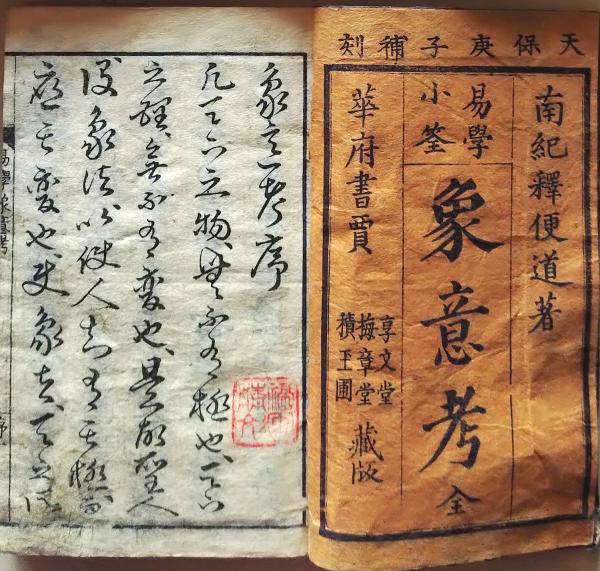 天保庚子補刻
南紀釋便道著
易學
小筌
象意考全
華府書賈
享文堂
梅章堂
積玉圃
藏版
象意考序
凡天下之物無不有極也天下
之理無不有變也是故聖人
設象法以使人知有其極而
應其變也夫象者天之
易學象意考
序